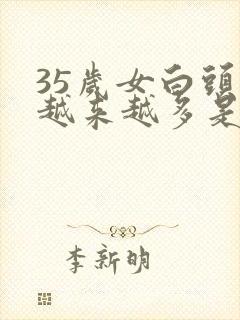 35歲女白頭
越来越多是
李新明